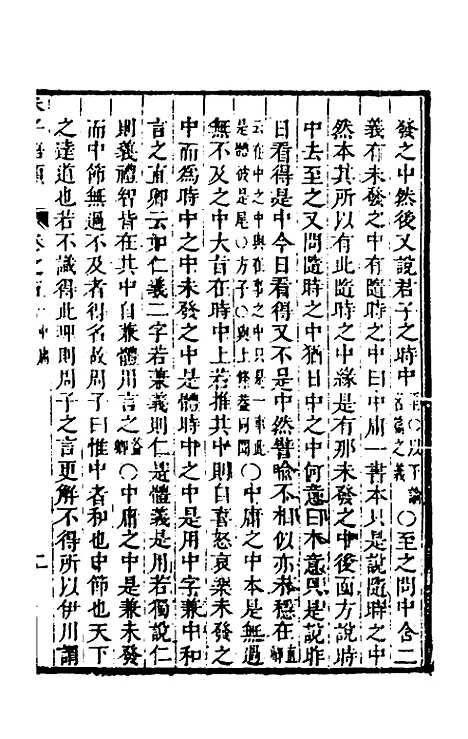 發之中然後又說君子之時中至〇以下論名篇之義〇至之問中含二
義有未發之中有隨時之中曰中庸一書本只是說隨時之中
然本其所以有此隨時之中緣是有那未發之中後面方說時
中去至之又問隨時之中猶日中之中何意曰本意只是說昨
日看得是中今日看得又不是中然譬喻不相似亦未穩在直卿
云在中之中與在事之中只是一事此是體彼是尾〇方子〇與上條蓋同聞〇中庸之中本是無過
無不及之中大旨在時中上若推其中則自喜怒哀樂未發之
中而為時中之中未發之中是體時中之中是用中字兼中和
言之直卿云如仁義二字若兼義則仁是體義是用若獨說仁
則義禮智皆在其中自兼體用言之蓋卿〇中庸之中是兼已發
而中節無過不及者得名故周子曰惟中者和也中節也天下
之達道也若不識得此理則周子之言更解不得所以伊川謂
朱子語類 卷之 中庸 二